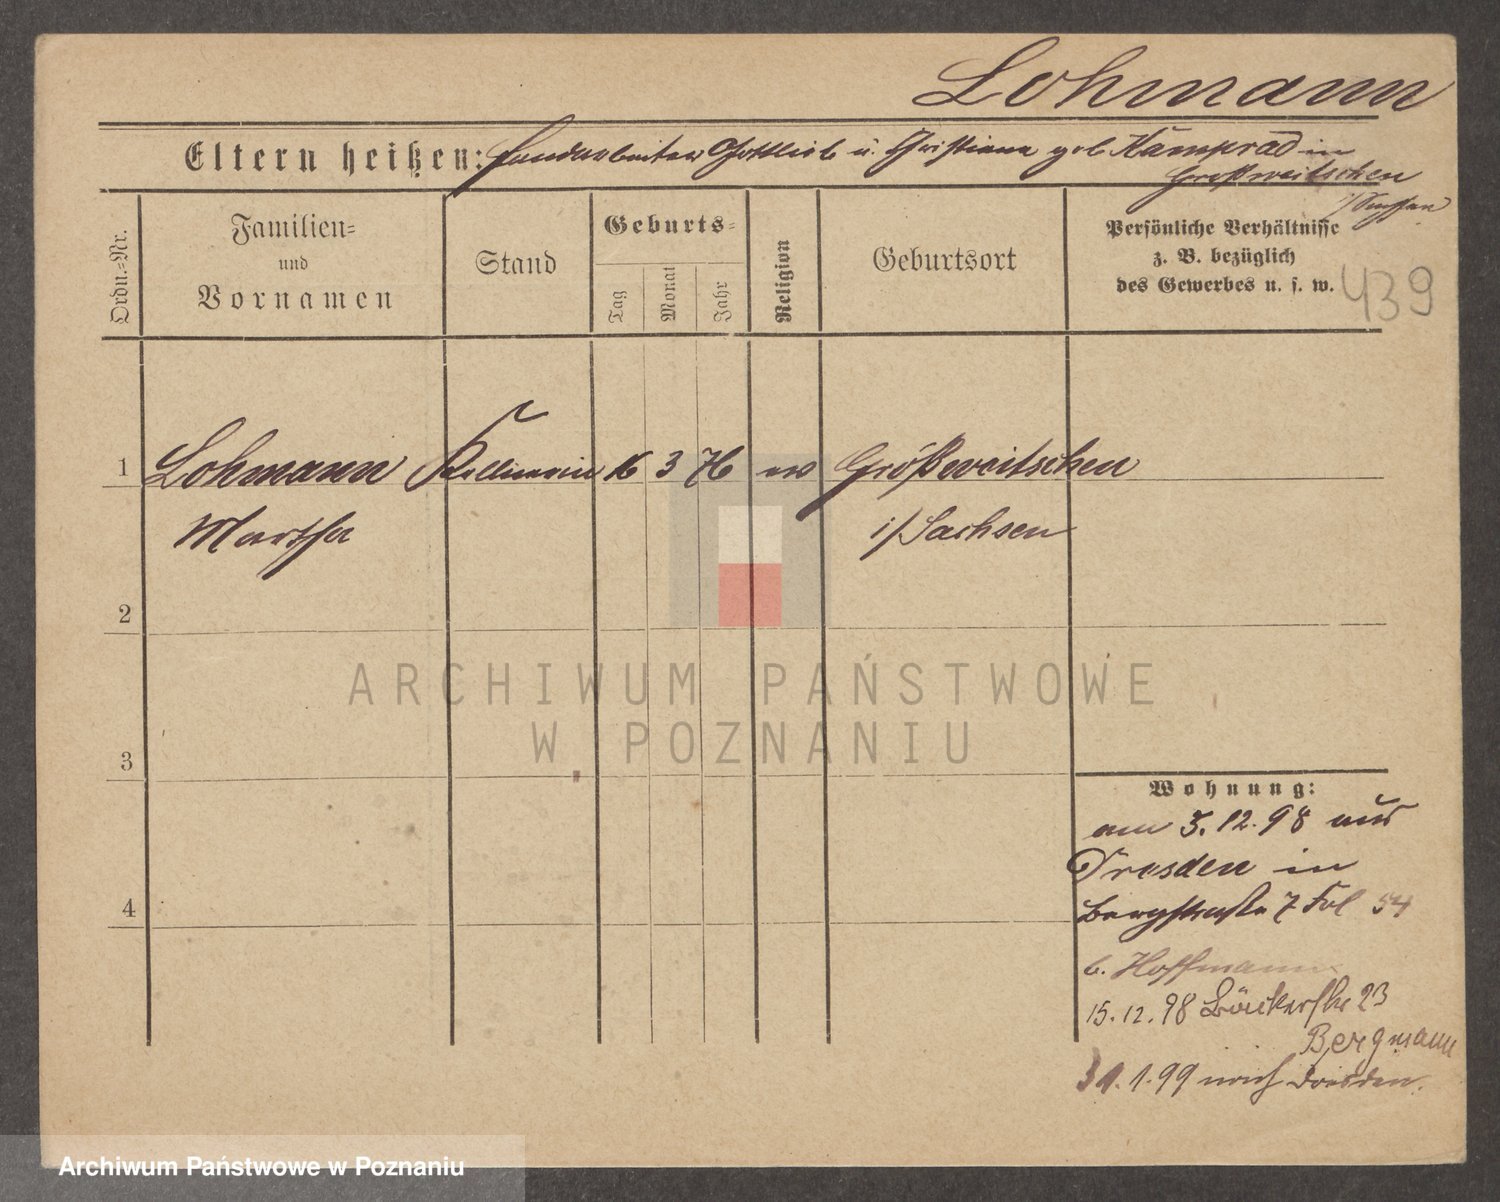 Lohmann
Eltern heißen: Handarbeiter Gottlieb u. Christiane geb. Kamprad in
Großweitschen
i/Sachsen
Ordn.-Nr.
Familien-
und
Vornamen
Stand
Geburts-
Tag
Monat
Jahr
Religion
Geburtsort
Persönliche Verhältnisse
z. B. bezüglich
des Gewerbes u. s. w.
439
1 Lohmann Kellnerin 16 3 76 ev Großweitschen
Martha i/Sachsen
2
ARCHIWUM PAŃSTWOWE
W POZNANIU
3
Wohnung:
am 3.12.98 aus
Dresden in
4
Bergstraße 7 Fol 54
b. Hoffmann
15.12.98 Bäckerstr 23
Bergmann
31.1.99 nach Dresden.
Archiwum Państwowe w Poznaniu